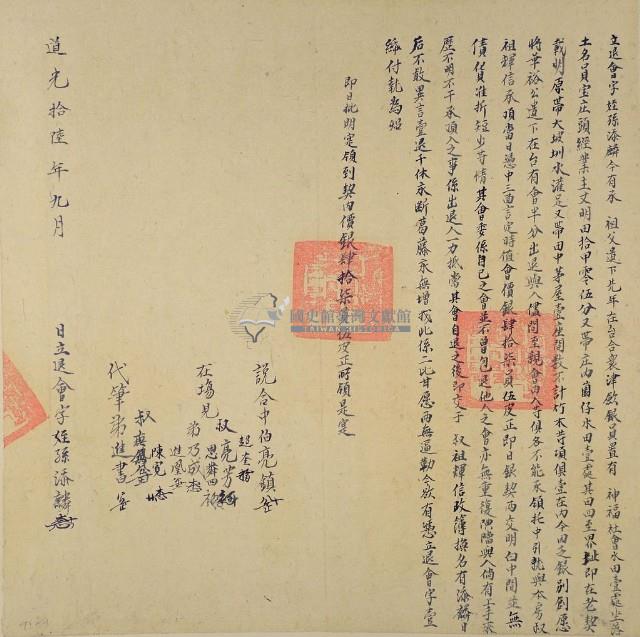 立退會字姪孫添麟今有承 祖父遺下先年在台合衆津欵銀員置有 神福社會水田壹處坐落
土名員宝庄頭經業主丈明田拾甲零伍分又帶庄內園仔水田壹處其田四至界址即在老契
載明原帶大坡圳水灌足又帶田中茅屋壹座間數不計竹木等項俱壹在內今因乏銀別創愿
將華裕公遺下在台有會半分出退與人儘問至親會內人等俱各不能承領托中引就與本房叔
祖輝信承頂當日憑中三面言定時值會價銀肆拾柒員伍皮正即日銀契兩交明白中間並無
債貨准折短少等情其會委係自己之會並不曾包退他人之會亦無重復典掛與人倘有上手來
歷不明不干承頂人之事係出退人一力抵當其會自退之後即交于 叔輝信政簿換名有添麟日
后不敢異言壹退千休永斷葛藤永無增找此係二比甘愿兩無逼勒今欲有憑立退會字壹
紙付執為炤
即日批明定領到契內價銀肆拾柒員伍皮正時領是定
說合中伯亮鎮
在塲見
叔亮芳
弟乃成
進鳳
代筆弟進書
道光拾陸年九月
日立退會字姪孫添麟
國史館臺灣文獻館
TAIWAN HISTORICA